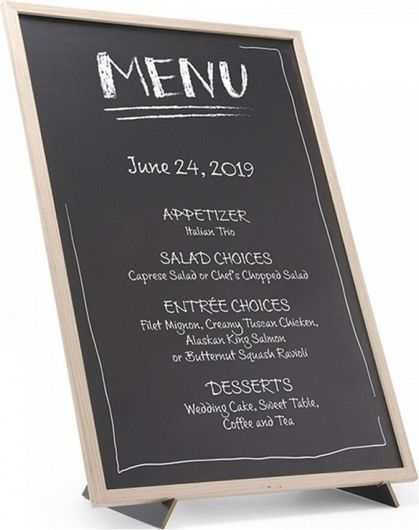 MENU
June 24, 2019
APPETIZER
Italian Trio
SALAD CHOICES
Caprese Salad or Chef's Chopped Salad
ENTRÉE CHOICES
Filet Mignon, Creamy Tuscan Chicken,
Alaskan King Salmon
or Butternut Squash Ravioli
DESSERTS
Wedding Cake, Sweet Table,
Coffee and Tea